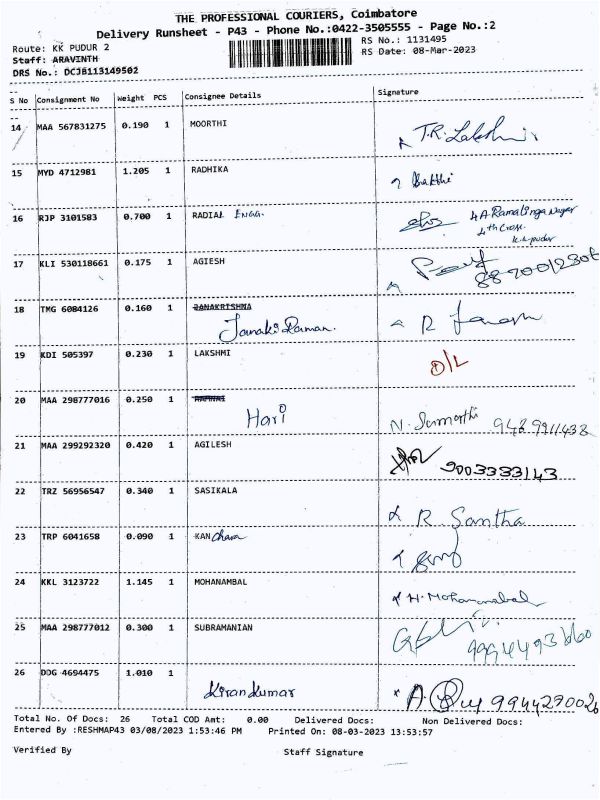 THE PROFESSIONAL COURIERS, Coimbatore
Delivery Runsheet - P43 - Phone No.:0422-3505555 - Page No.:2
Route: KK PUDUR 2
RS No.: 1131495
Staff: ARAVINTH
RS Date: 08-Mar-2023
DRS No.: DCJB113149502
S No Consignment No Weight PCS Consignee Details Signature
14 MAA 567831275 0.190 1 MOORTHI T.R. Lakshmi
15 MYD 4712981 1.205 1 RADHIKA Shakthi
16 RJP 3101583 0.700 1 RADIAL ENGG. 4 A Ramalinga Nagar
4th Cross
K.K. pudur
17 KLI 530118661 0.175 1 AGIESH
18 TMG 6084126 0.160 1 JANAKRISHNA
Janaki Raman.
19 KDI 505397 0.230 1 LAKSHMI D/L
20 MAA 298777016 0.250 1
Hari N. Sumathi
21 MAA 299292320 0.420 1 AGILESH 9003333143
22 TRZ 56956547 0.340 1 SASIKALA R. Santha
23 TRP 6041658 0.090 1 KAN
24 KKL 3123722 1.145 1 MOHANAMBAL
25 MAA 298777012 0.300 1 SUBRAMANIAN
26 DDG 4694475 1.010 1
Kiran kumar
Total No. Of Docs: 26 Total COD Amt: 0.00 Delivered Docs: Non Delivered Docs:
Entered By :RESHMAP43 03/08/2023 1:53:46 PM Printed On: 08-03-2023 13:53:57
Verified By Staff Signature